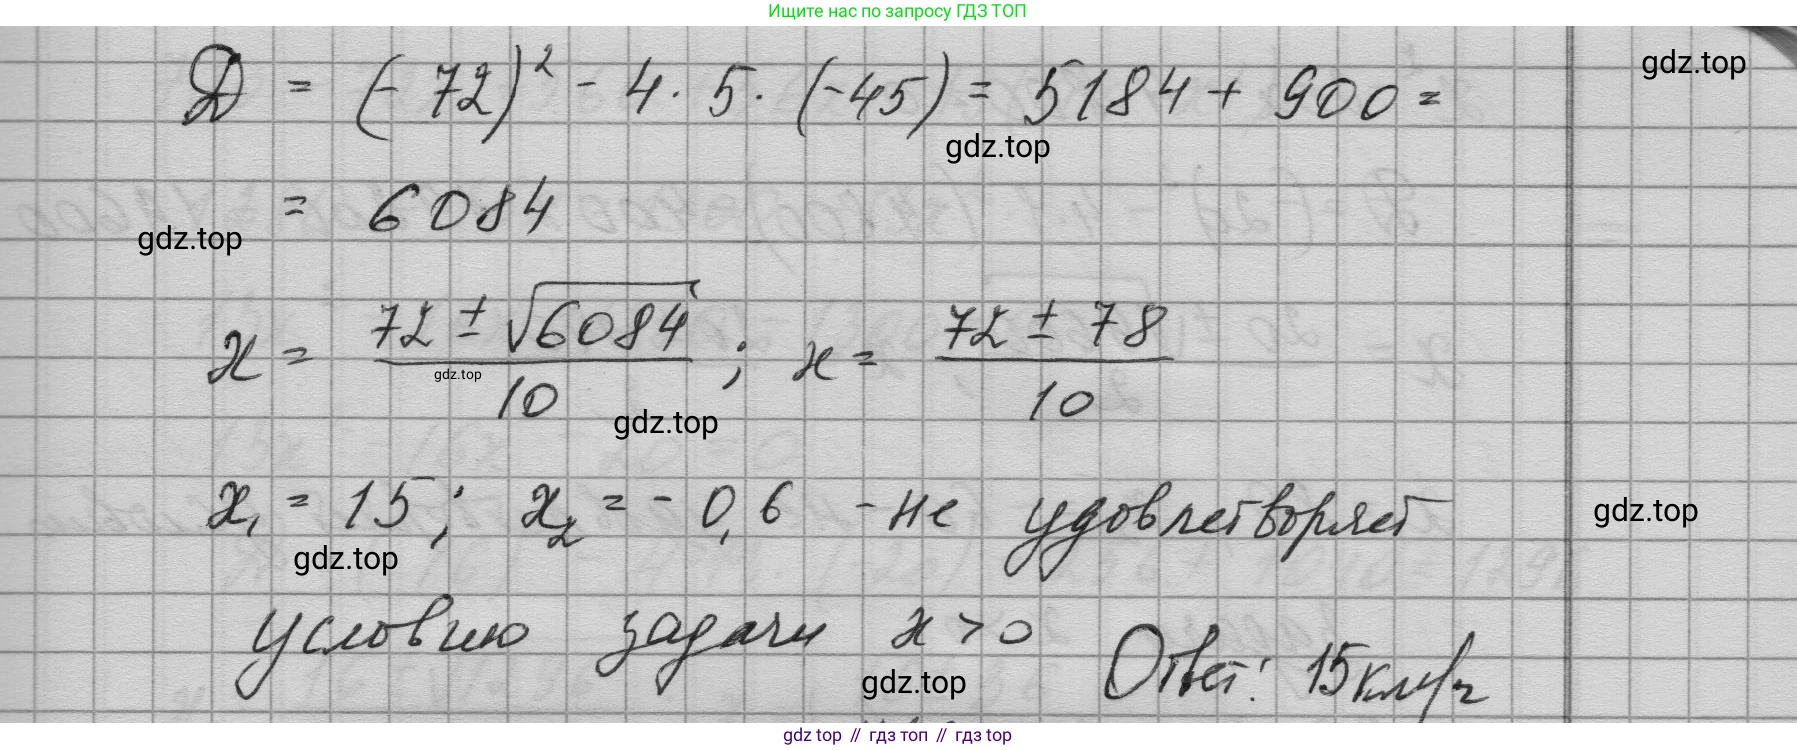 Ищите нас по запросу ГДЗ ТОП
Д = (-72)² - 4 · 5 · (-45) = 5184 + 900 =
gdz.top
gdz.top
= 6084
gdz.top
x = (72 ± √6084)/10 ; x = (72 ± 78)/10
gdz.top
gdz.top
x₁ = 15 ; x₂ = - 0,6 - не удовлетворяет
gdz.top
gdz.top
условию задачи x > 0 Ответ: 15 км/ч
gdz.top
gdz top // гдз топ // гдз top